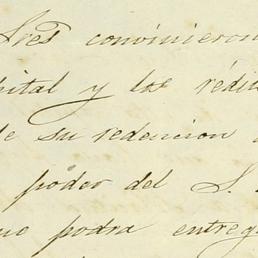 Sres convinieron
pital y los rédit
de su redencion
poder del S.
no podra entreg